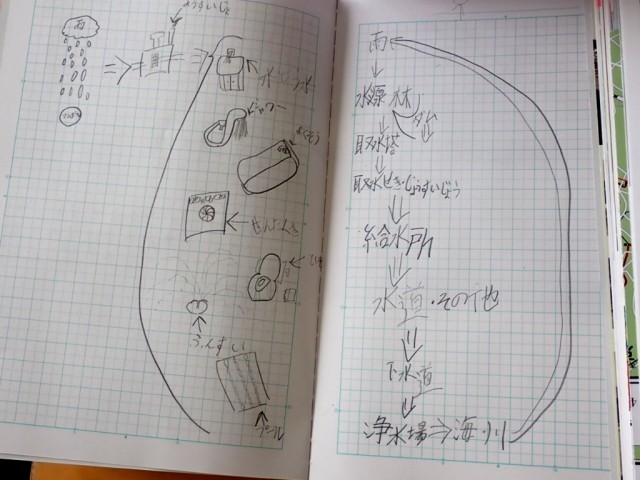 雨
じょうすいじょ
シャワー
よくそう
せんたくき
ふんすい
プール
雨
水源林
ダム
取水塔
取水せき・じょうすいじょう
給水所
水道・その他
下水道
浄水場⇒海・川